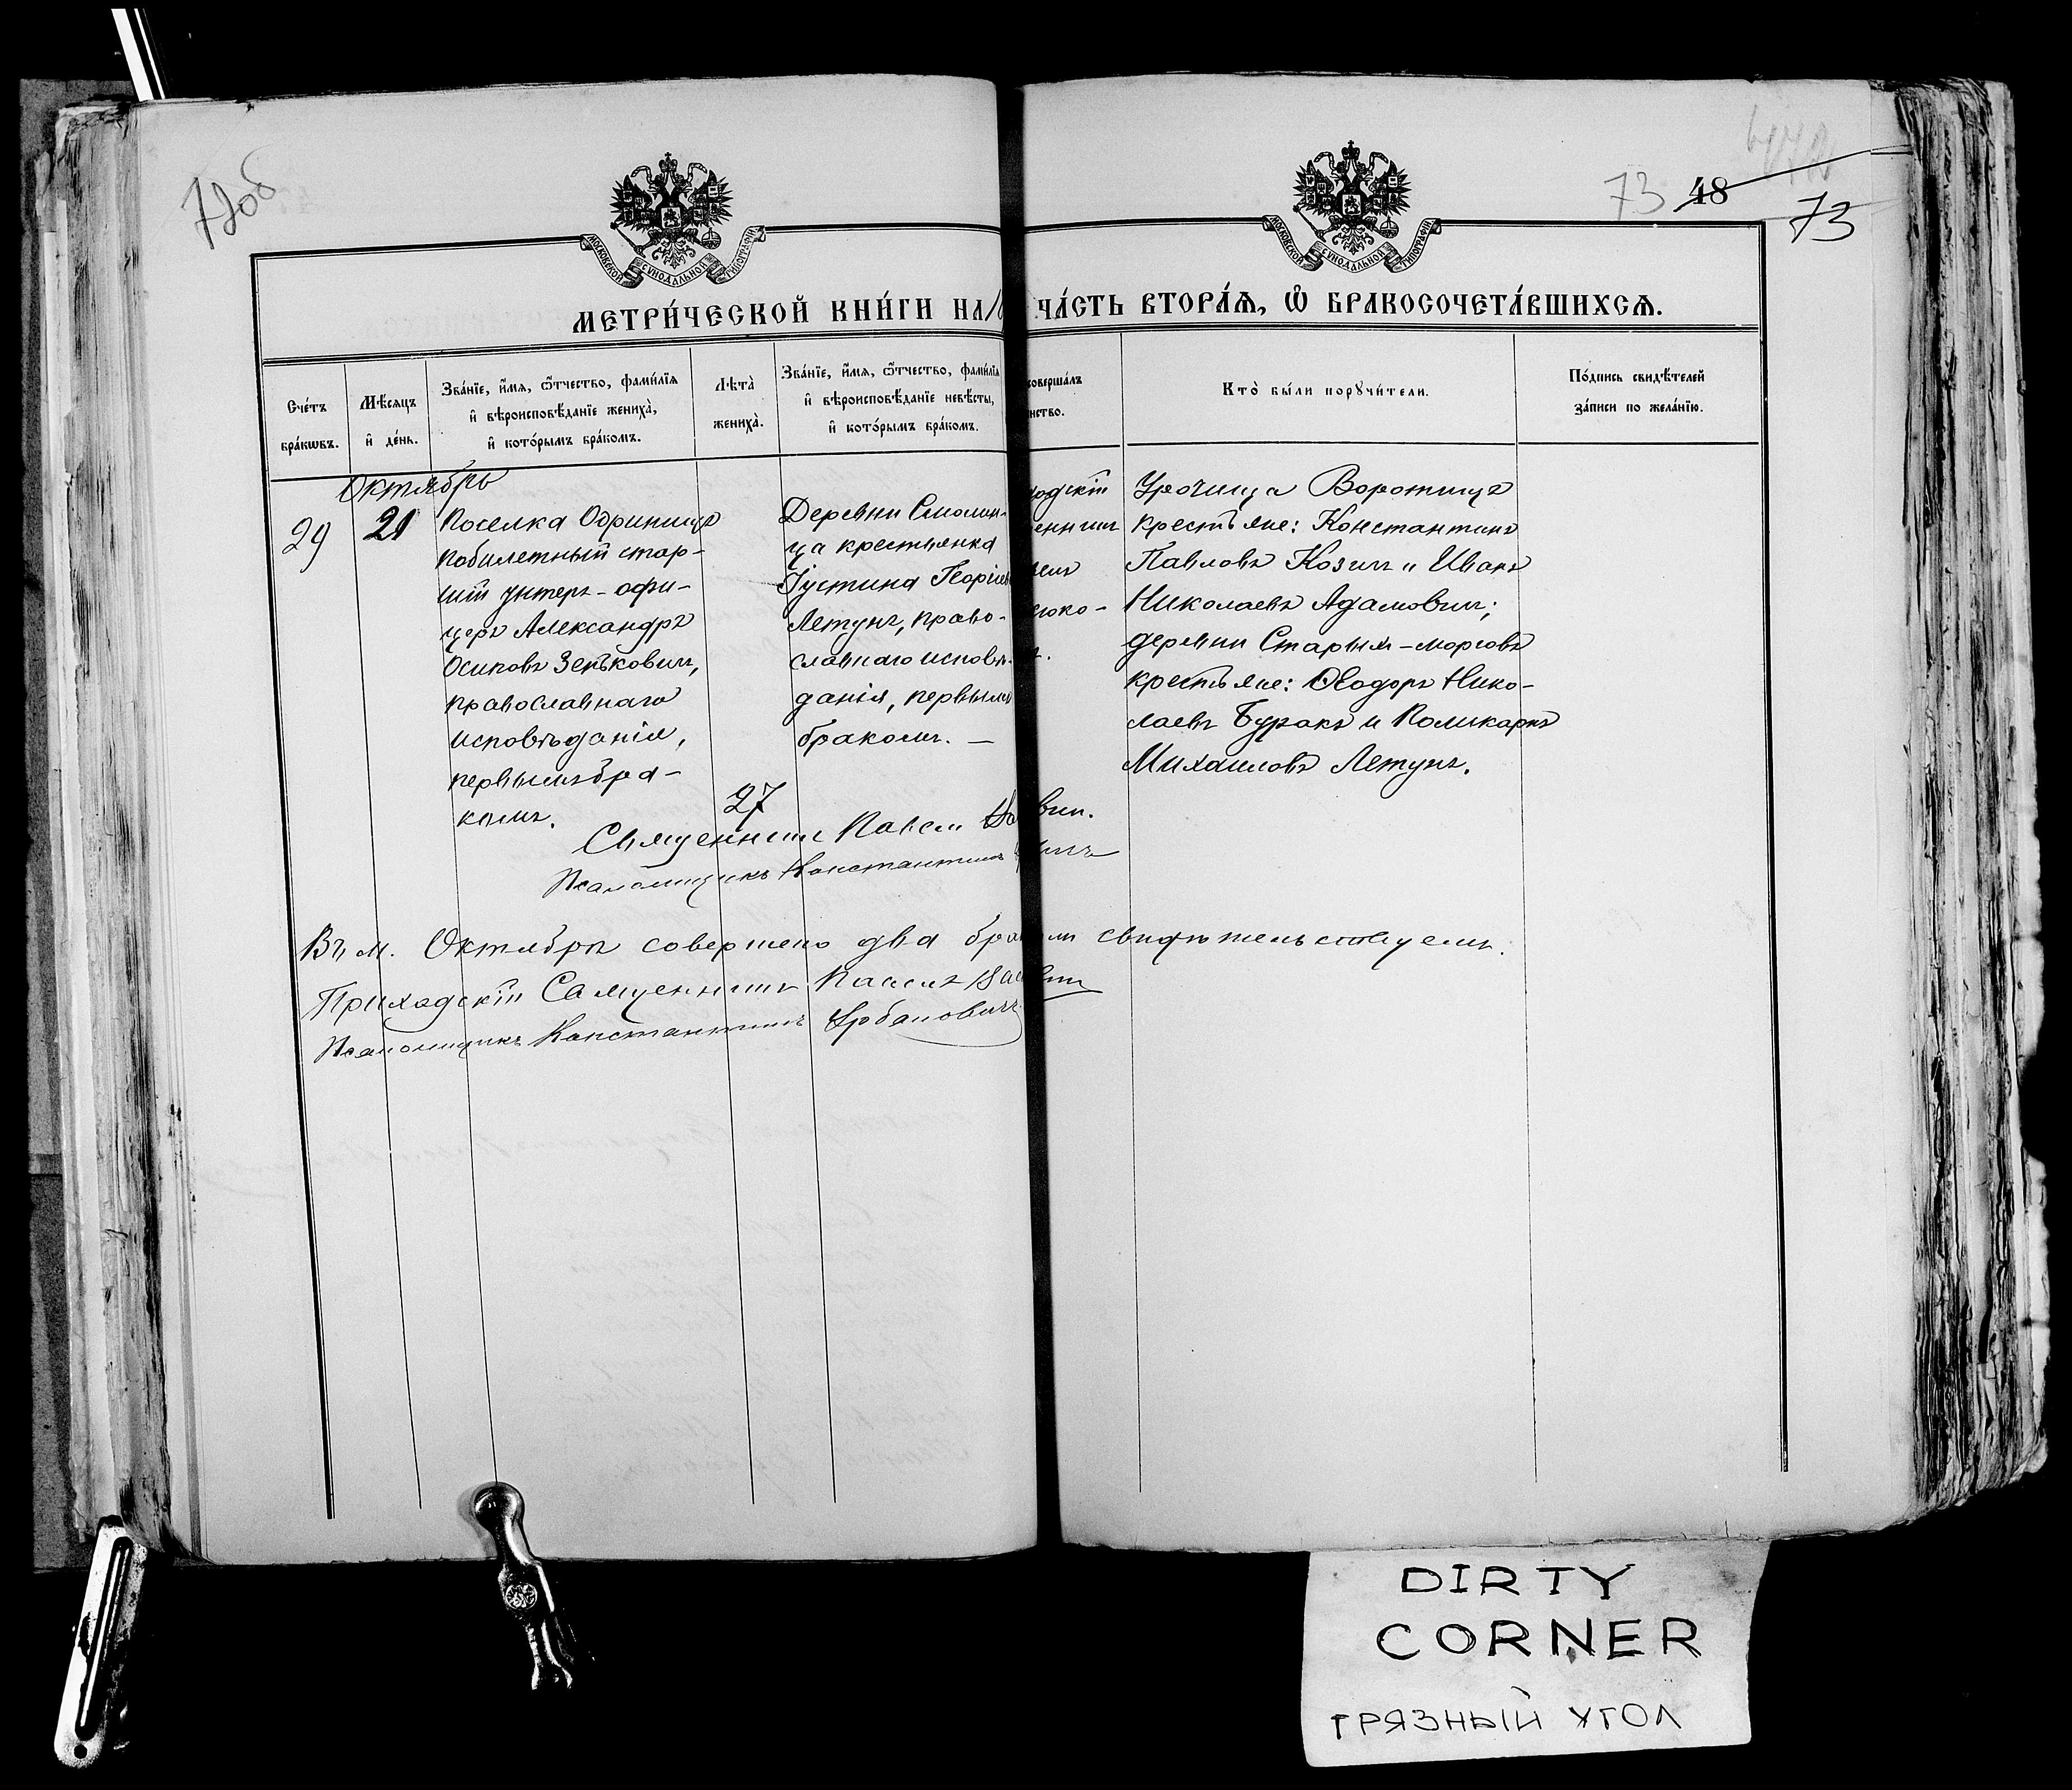 72об
73 48
73
МОСКОВСКОЙ СѴНОДАЛЬНОЙ ТИПОГРАФІИ
МОСКОВСКОЙ СѴНОДАЛЬНОЙ ТИПОГРАФІИ
МЕТРИ́ЧЕСКОЙ КНИ́ГИ НА ЧА́СТЬ ВТОРА́Ѧ, Ѽ БРАКОСОЧЕТА́ВШИХСѦ.
Сче́тъ бра́кѡвъ.
Мѣ́сѧцъ и҆ де́нь.
Зва́нїе, и҆́мѧ, ѻ҆́тчество, фами́лїѧ
и҆ вѣроисповѣ́данїе жениха̀,
и҆ кото́рымъ бра́комъ.
Лѣта̀ жениха̀.
Зва́нїе, и҆́мѧ, ѻ҆́тчество, фами́лїѧ
и҆ вѣроисповѣ́данїе невѣ́сты,
и҆ кото́рымъ бра́комъ.
соверша́лъ
нство.
Кто̀ бы́ли порꙋчи́тели.
По́дпись свидѣ́телей
за́писи по жела́нїю.
Октябрь
29
21
Поселка Одринище
побилетный стар-
шій унтеръ-офи-
церъ Александръ
Осиповъ Зенькович,
православнаго
исповѣданія,
первымъ бра-
комъ.
27
Деревни Смолин-
ца крестьянка
Іустина Георгіев
Летунъ, право-
славнаго исповѣ-
данія, первымъ
бракомъ. —
одскій
енникъ
велъ
Урочища Воротищъ
крестьяне: Константинъ
Павловъ Козич и Иванъ
Николаевъ Адамович;
деревни Старых-морговъ
крестьяне: Ѳеодоръ Нико-
лаевъ Буракъ и Поликарпъ
Михаиловъ Летунъ.
Священникъ Павелъ
Псаломщикъ Константинъ
Въ м. Октябрѣ совершено два бра свидѣтельствуемъ.
Приходскій Священникъ Павелъ
Псаломщикъ Константинъ Урбановичъ
DIRTY
CORNER
ГРЯЗНЫЙ УГОЛ